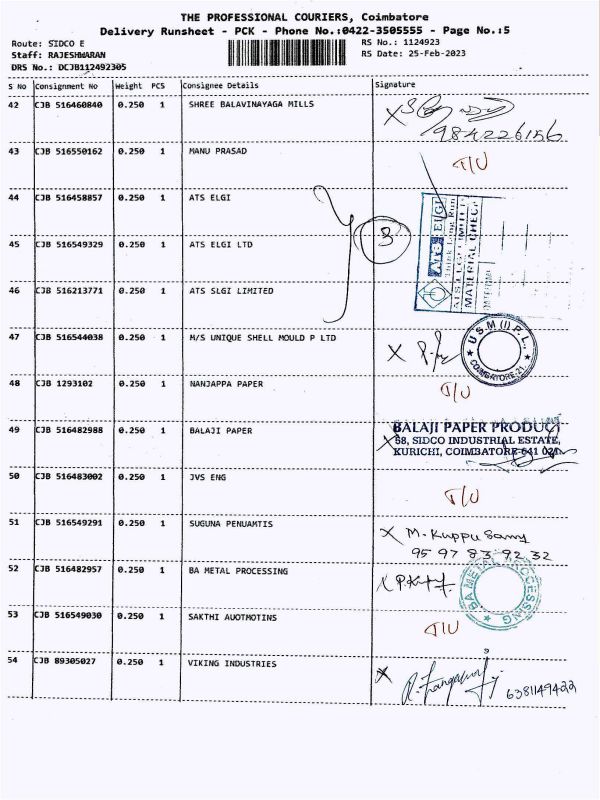 THE PROFESSIONAL COURIERS, Coimbatore
Delivery Runsheet - PCK - Phone No.:0422-3505555 - Page No.:5
Route: SIDCO E
RS No.: 1124923
Staff: RAJESHWARAN
RS Date: 25-Feb-2023
DRS No.: DCJB112492305
S No Consignment No Weight PCS Consignee Details Signature
42 CJB 516460840 0.250 1 SHREE BALAVINAYAGA MILLS
984226156
43 CJB 516550162 0.250 1 MANU PRASAD T/U
44 CJB 516458857 0.250 1 ATS ELGI
45 CJB 516549329 0.250 1 ATS ELGI LTD 3
ATS ELGI
46 CJB 516213771 0.250 1 ATS SLGI LIMITED
47 CJB 516544038 0.250 1 M/S UNIQUE SHELL MOULD P LTD X
U.S.M (I) P.L., COIMBATORE-21
48 CJB 1293102 0.250 1 NANJAPPA PAPER T/U
49 CJB 516482988 0.250 1 BALAJI PAPER
BALAJI PAPER PRODUCT
58, SIDCO INDUSTRIAL ESTATE,
KURICHI, COIMBATORE-641 021
50 CJB 516483002 0.250 1 JVS ENG T/U
51 CJB 516549291 0.250 1 SUGUNA PENUAMTIS X M. Kuppu Samy
95 97 83 92 32
52 CJB 516482957 0.250 1 BA METAL PROCESSING X
BA METAL PROCESSING
53 CJB 516549030 0.250 1 SAKTHI AUOTMOTINS T/U
54 CJB 89305027 0.250 1 VIKING INDUSTRIES X
6381149422